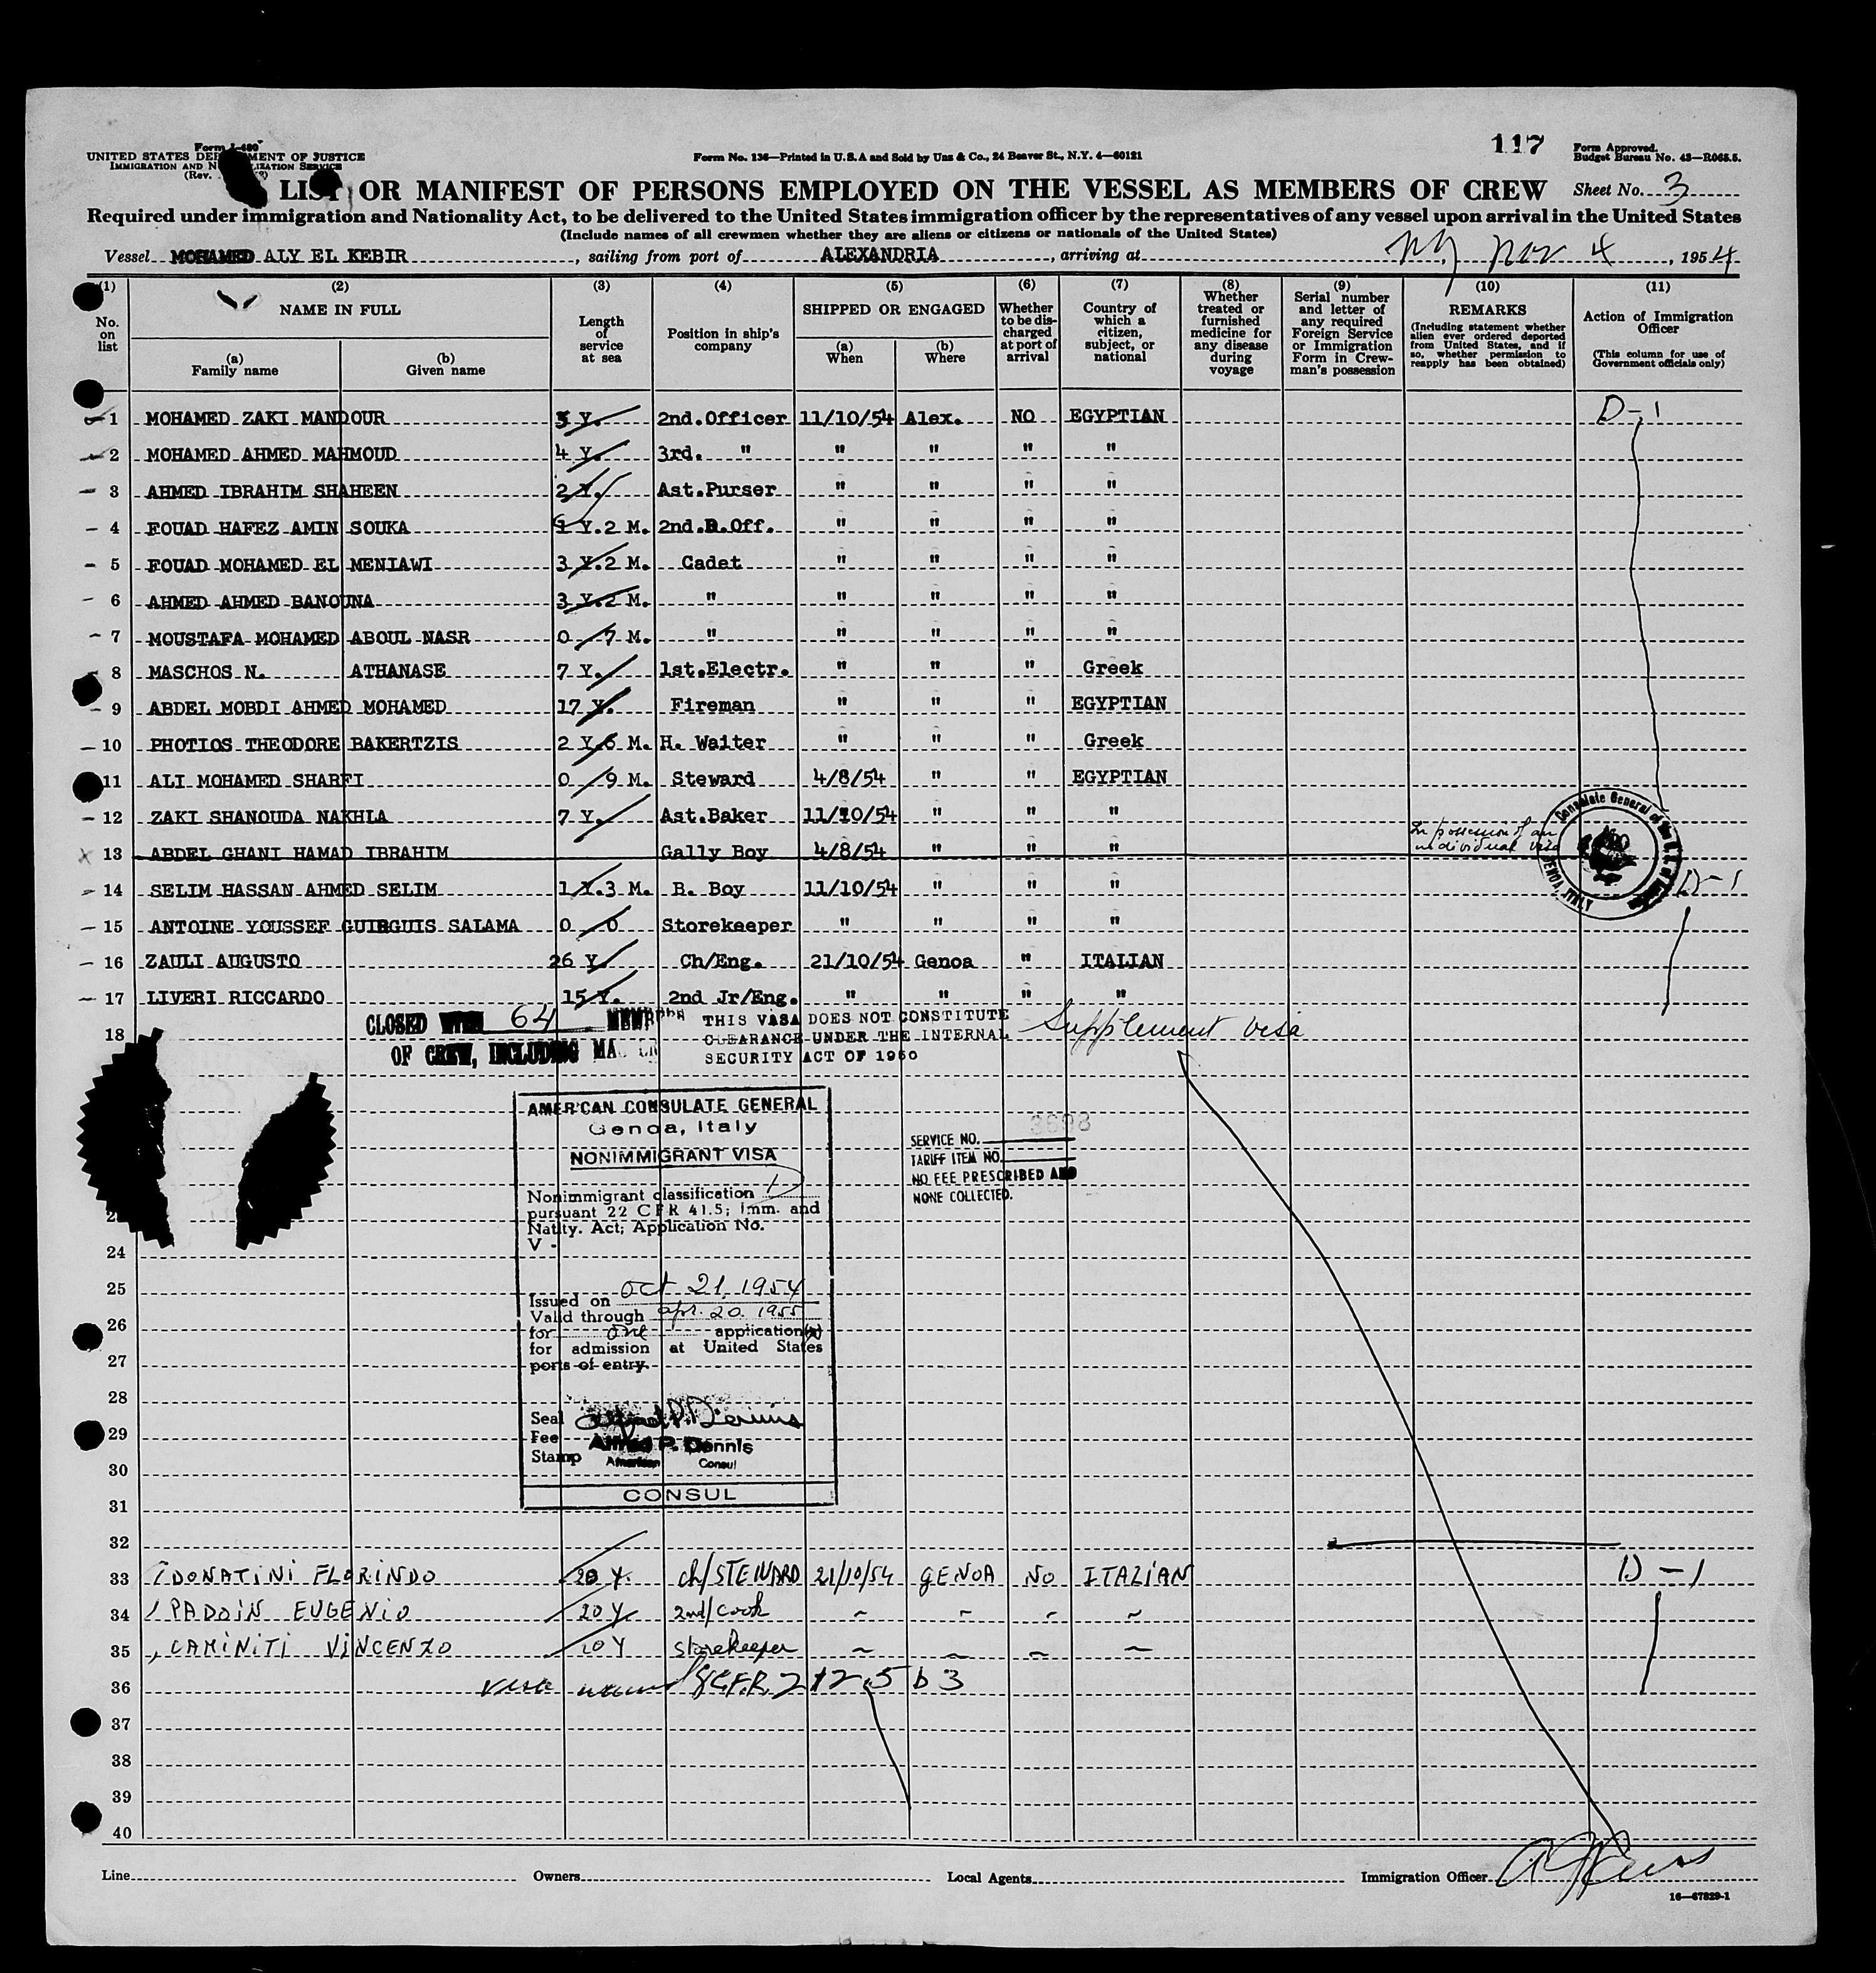 117
UNITED STATES DEPARTMENT OF JUSTICE
Form No. 136—Printed in U.S.A and Sold by Unz & Co., 24 Beaver St., N.Y. 4—60121
Form Approved.
Budget Bureau No. 43—R065.5.
(Rev.
LIST OR MANIFEST OF PERSONS EMPLOYED ON THE VESSEL AS MEMBERS OF CREW Sheet No. 3
Required under immigration and Nationality Act, to be delivered to the United States immigration officer by the representatives of any vessel upon arrival in the United States
(Include names of all crewmen whether they are aliens or citizens or nationals of the United States)
Vessel MOHAMED ALY EL KEBIR, sailing from port of ALEXANDRIA, arriving at NY Nov 4, 1954
(1) No. on list
(2) NAME IN FULL (a) Family name (b) Given name
(3) Length of service at sea
(4) Position in ship's company
(5) SHIPPED OR ENGAGED (a) When (b) Where
(6) Whether to be discharged at port of arrival
(7) Country of which a citizen, subject, or national
(8) Whether treated or furnished medicine for any disease during voyage
(9) Serial number and letter of any required Foreign Service or Immigration Form in Crewman's possession
(10) REMARKS (Including statement whether alien ever ordered deported from United States, and if so, whether permission to reapply has been obtained)
(11) Action of Immigration Officer (This column for use of Government officials only)
1 MOHAMED ZAKI MANDOUR 5 Y. 2nd.Officer 11/10/54 Alex. NO EGYPTIAN D-1
2 MOHAMED AHMED MAHMOUD 4 Y. 3rd. " " " " "
3 AHMED IBRAHIM SHAHEEN 2 Y. Ast.Purser " " " "
4 FOUAD HAFEZ AMIN SOUKA Y.2 M. 2nd.R.Off. " " " "
5 FOUAD MOHAMED EL MENIAWI 3 Y.2 M. Cadet " " " "
6 AHMED AHMED BANOUNA 3 Y.2 M. " " " " "
7 MOUSTAFA MOHAMED ABOUL NASR 0 7 M. " " " " "
8 MASCHOS N. ATHANASE 7 Y. 1st.Electr. " " " Greek
9 ABDEL MOBDI AHMED MOHAMED 17 Y. Fireman " " " EGYPTIAN
10 PHOTIOS THEODORE BAKERTZIS 2 Y.6 M. H. Waiter " " " Greek
11 ALI MOHAMED SHARFI 0 9 M. Steward 4/8/54 " " EGYPTIAN
12 ZAKI SHANOUDA NAKHLA 7 Y. Ast.Baker 11/10/54 " " "
13 ABDEL GHANI HAMAD IBRAHIM Gally Boy 4/8/54 " " " In possession of an individual visa
Consulate General of the U.S. of
GENOA, ITALY
14 SELIM HASSAN AHMED SELIM 1 Y.3 M. B. Boy 11/10/54 " " " D-1
15 ANTOINE YOUSSEF GUIRGUIS SALAMA 0 0 Storekeeper " " " "
16 ZAULI AUGUSTO 26 Y. Ch/Eng. 21/10/54 Genoa " ITALIAN
17 LIVERI RICCARDO 15 Y. 2nd Jr/Eng. " " " "
18
CLOSED WITH 64 MEMBERS
OF CREW, INCLUDING MA
THIS VASA DOES NOT CONSTITUTE
CLEARANCE UNDER THE INTERNAL
SECURITY ACT OF 1950
Supplement visa
AMERICAN CONSULATE GENERAL
Genoa, Italy
NONIMMIGRANT VISA
Nonimmigrant classification D
pursuant 22 CFR 41.5; Imm. and
Natlty. Act; Application No.
V -
Issued on Oct 21, 1954
Valid through Apr. 20. 1955
for one application(s)
for admission at United States
ports of entry.
Seal
Fee
Stamp
Alfred P. Dennis
Alfred P. Dennis
American Consul
CONSUL
3698
SERVICE NO.
TARIFF ITEM NO.
NO FEE PRESCRIBED AND
NONE COLLECTED.
24
25
26
27
28
29
30
31
32
33 DONATINI FLORINDO 20 Y. ch/STEWARD 21/10/54 GENOA NO ITALIAN D-1
34 PADOIN EUGENIO 20 Y 2nd/cook
35 CAMINITI VINCENZO 20 Y storekeeper
36 8 C.F.R. 212.5 b 3
37
38
39
40
Line
Owners
Local Agents
Immigration Officer
16—67829-1